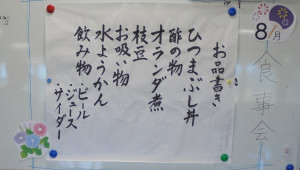 8月食事会
お品書き
ひつまぶし丼
酢の物
オランダ煮
枝豆
お吸い物
水ようかん
飲み物
・ビール
・ジュース
・サイダー